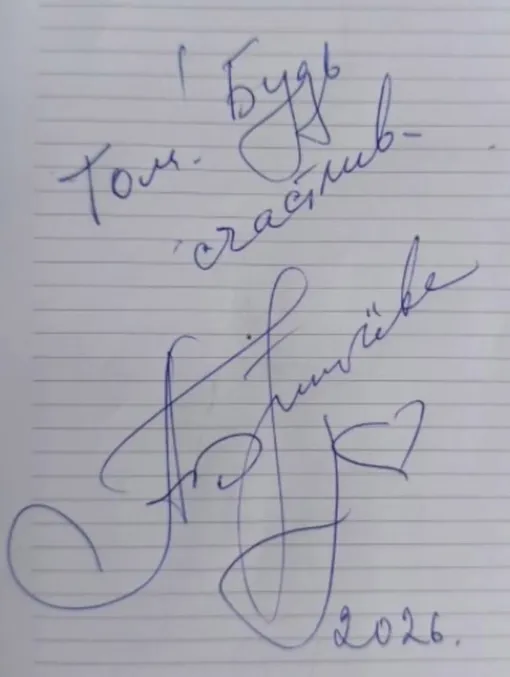 Будь
Том.
счастлив-
2026.